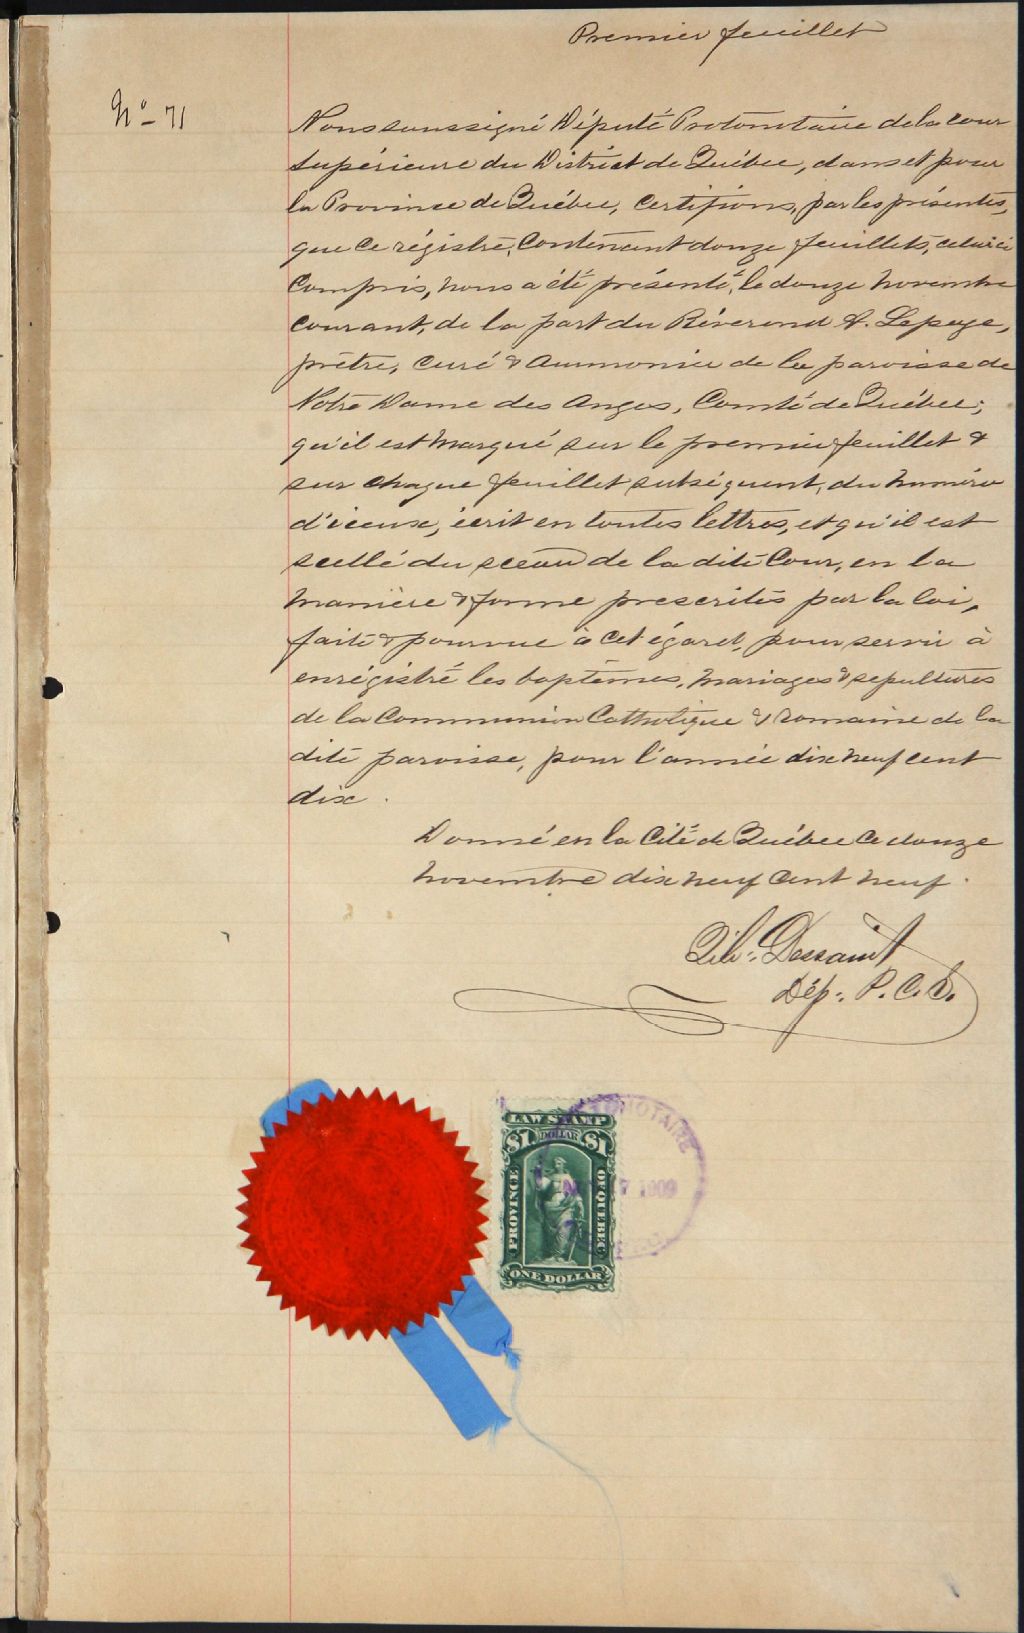 Premier feuillet
No- 71
Nous soussigné Député Protonotaire de la cour
Supérieure du District de Québec, dans et pour
la Province de Québec, Certifions, par les présentes,
que ce régistre, Contenant douze feuillets, celui ci
Compris, nous a été présenté, le douze novembre
courant, de la part du Révérend A. Lepage,
prêtre, curé & aumonier de la paroisse de
Notre Dame des Anges, Comté de Québec;
qu'il est marqué sur le premier feuillet &
sur chaque feuillet subséquent, du numéro
d'iceux, écrit en toutes lettres, et qu'il est
scellé du sceau de la dite Cour, en la
manière & forme prescrites par la loi,
faite & pourvue à cet égard, pour servir à
enrégistré les baptêmes, mariages & sepultures
de la Communion Catholique & romaine de la
dite paroisse, pour l'année dix neuf cent
dix.
Donné en la Cité de Québec ce douze
novembre dix neuf cent neuf.
Dép. P. C. S.
LAW STAMP
$1 DOLLAR $1
PROVINCE
OF QUEBEC
ONE DOLLAR
1909